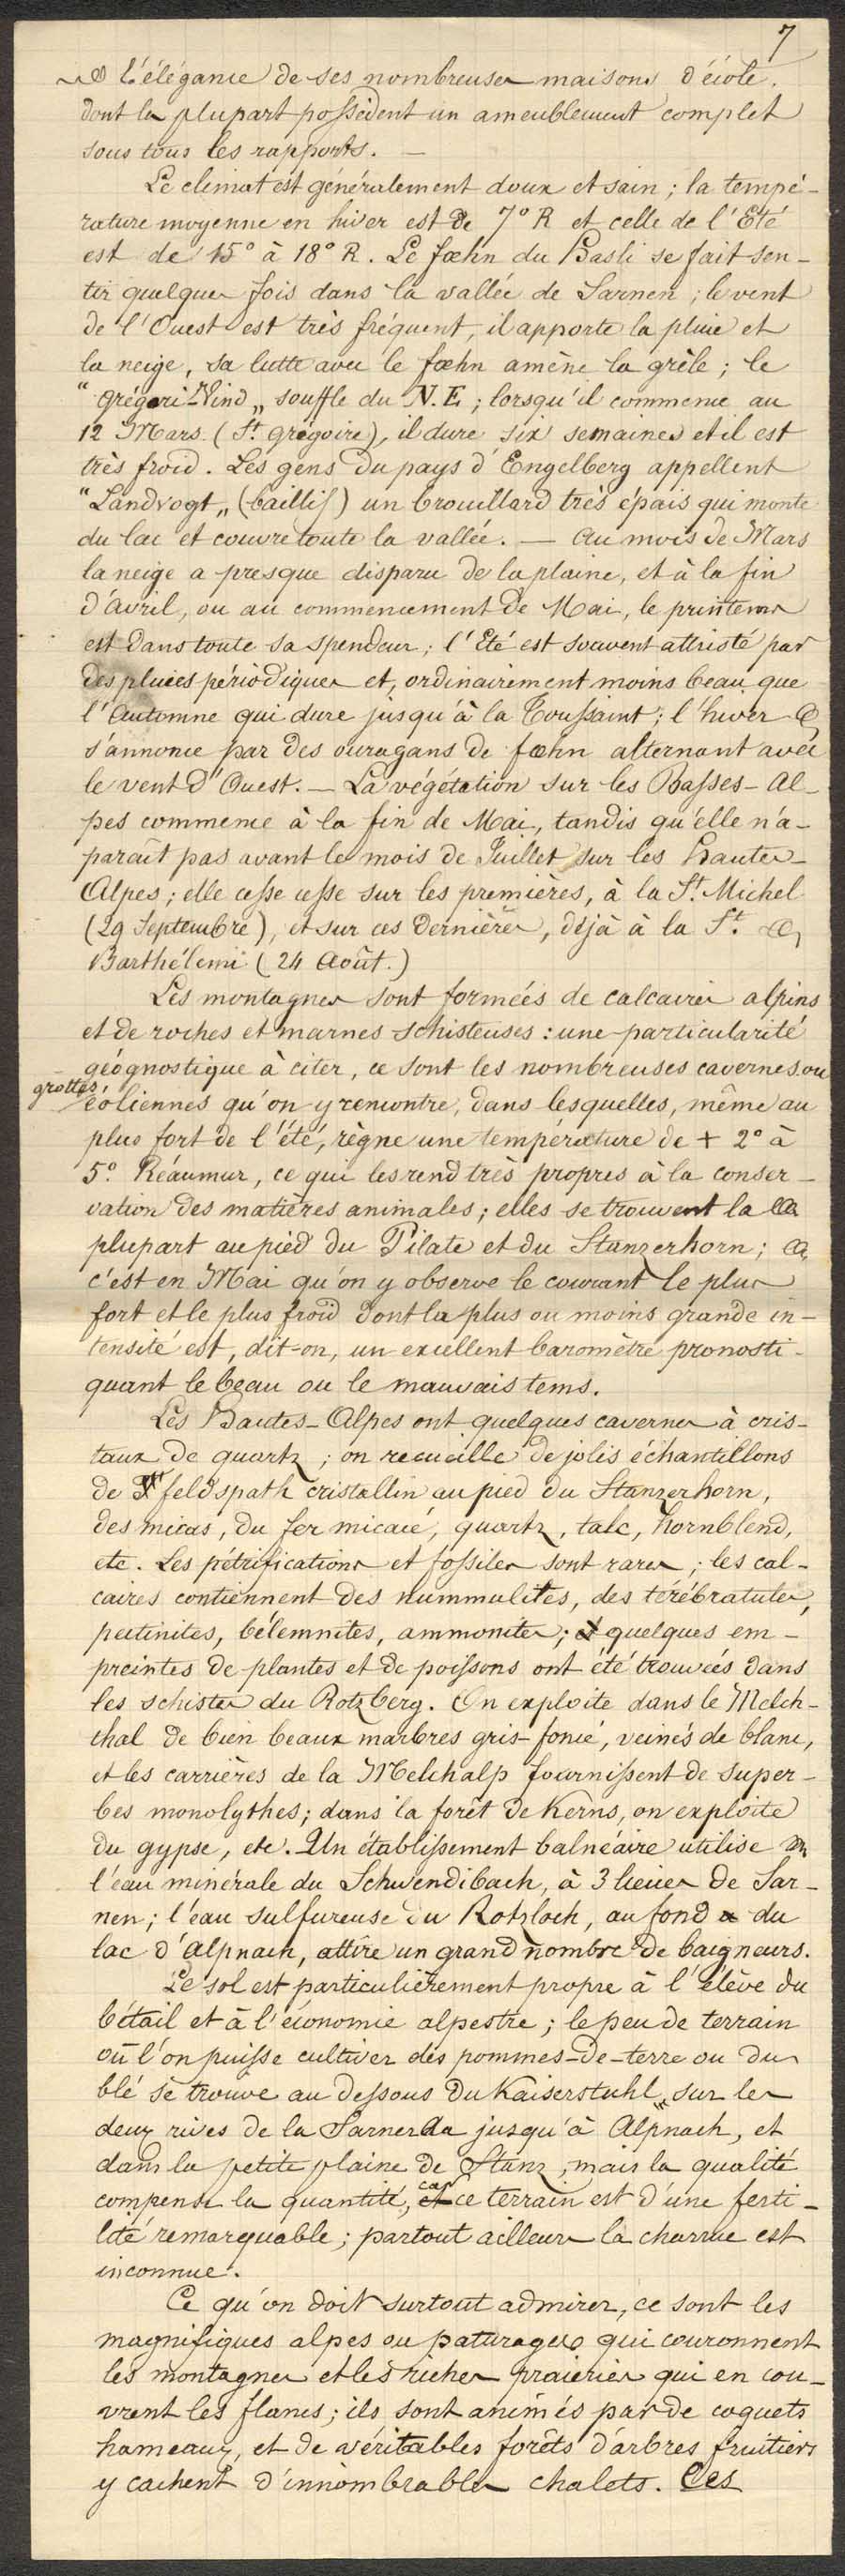 7
l'élégance de ses nombreuses maisons d'école,
dont la plupart possèdent un ameublement complet
sous tous les rapports. —
Le climat est généralement doux et sain ; la tempé-
rature moyenne en hiver est de 7° R et celle de l'Eté
est de 15° à 18° R. Le fœhn du Hasli se fait sen-
tir quelques fois dans la vallée de Sarnen ; le vent
de l'Ouest est très fréquent, il apporte la pluie et
la neige, sa lutte avec le fœhn amène la grêle ; le
"Grégori-Wind„ souffle du N.E ; lorsqu'il commence au
12 Mars (St. Grégoire), il dure six semaines et il est
très froid. Les gens du pays d'Engelberg appellent
"Landvogt„ (baillif) un brouillard très épais qui monte
du lac et couvre toute la vallée. — Au mois de Mars
la neige a presque disparu de la plaine, et à la fin
d'Avril, ou au commencement de Mai, le printems
est dans toute sa spendeur ; l'Eté est souvent attristé par
des pluies périodiques et, ordinairement moins beau que
l'Automne qui dure jusqu'à la Toussaint ; l'hiver
s'annonce par des ouragans de fœhn alternant avec
le vent d'Ouest. — La végétation sur les Basses-Al-
pes commence à la fin de Mai, tandis qu'elle n'a-
paraît pas avant le mois de Juillet sur les Hautes-
Alpes ; elle cesse cesse sur les premières, à la St. Michel
(29 Septembre), et sur ces dernières, déjà à la St.
Barthélemi (24 Août.)
Les montagnes sont formées de calcaires alpins
et de roches et marnes schisteuses : une particularité
géognostique à citer, ce sont les nombreuses cavernes ou
grottes éoliennes qu'on y rencontre, dans lesquelles, même au
plus fort de l'été, règne une température de + 2° à
5° Réaumur, ce qui les rend très propres à la conser-
vation des matières animales ; elles se trouvent la
plupart au pied du Pilate et du Stanzerhorn ;
c'est en Mai qu'on y observe le courant le plus
fort et le plus froid dont la plus ou moins grande in-
tensité est, dit-on, un excellent baromètre pronosti-
quant le beau ou le mauvais tems.
Les Hautes-Alpes ont quelques cavernes à cris-
taux de quartz ; on recueille de jolis échantillons
de feldspath cristallin au pied du Stanzerhorn,
des micas, du fer micacé, quartz, talc, hornblend,
etc. Les pétrifications et fossiles sont rares ; les cal-
caires contiennent des nummulites, des térébratules,
pectinites, bélemnites, ammonites ; quelques em-
preintes de plantes et de poissons ont été trouvées dans
les schistes du Rotzberg. On exploite dans le Melch-
thal de bien beaux marbres gris-foncé, veinés de blanc,
et les carrières de la Melchalp fournissent de super-
bes monolythes ; dans la forêt de Kerns, on exploite
du gypse, etc. Un établissement balnéaire utilise
l'eau minérale du Schwendibach, à 3 lieues de Sar-
nen ; l'eau sulfureuse du Rotzloch, au fond du
lac d'Alpnach, attire un grand nombre de baigneurs.
Le sol est particulièrement propre à l'élève du
bétail et à l'économie alpestre ; le peu de terrain
où l'on puisse cultiver des pommes-de-terre ou du
blé se trouve au dessous du Kaiserstuhl, sur les
deux rives de la SarnerAa jusqu'à Alpnach, et
dans la petite plaine de Stanz, mais la qualité
compense la quantité, car ce terrain est d'une ferti-
lité remarquable ; partout ailleurs la charrue est
inconnue.
Ce qu'on doit surtout admirer, ce sont les
magnifiques alpes ou paturages qui couronnent
les montagnes et les riches praieries qui en cou-
vrent les flancs ; ils sont animés par de coquets
hameaux, et de véritables forêts d'arbres fruitiers
y cachent d'innombrables chalets. Ces